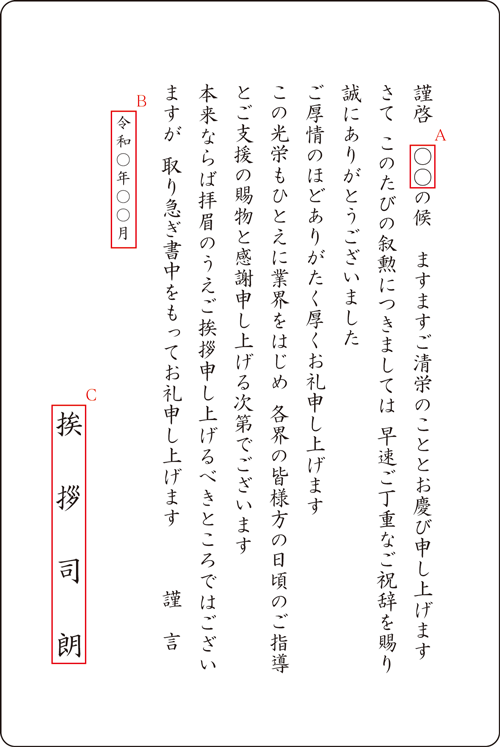 謹啓 〇〇の候 ますますご清栄のこととお慶び申し上げます
A
さて このたびの叙勲につきましては 早速ご丁重なご祝辞を賜り
誠にありがとうございました
ご厚情のほどありがたく厚くお礼申し上げます
この光栄もひとえに業界をはじめ 各界の皆様方の日頃のご指導
とご支援の賜物と感謝申し上げる次第でございます
本来ならば拝眉のうえご挨拶申し上げるべきところではござい
ますが 取り急ぎ書中をもってお礼申し上げます 謹言
B
令和〇年〇〇月
C
挨拶司朗